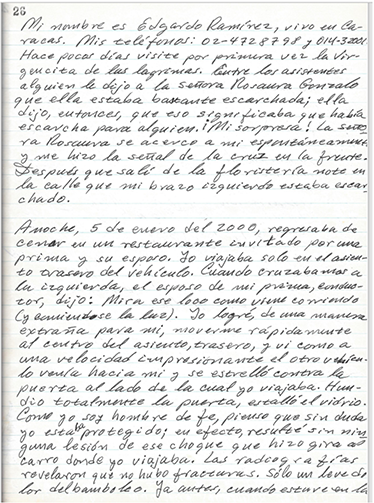 26
Mi nombre es Edgardo Ramírez, vivo en Ca-
racas. Mis teléfonos: 02-4728798 y
Hace pocos días visité por primera vez la Vir-
gencita de las lagrimas. Entre los asistentes
alguien le dijo a la señora Rosaura Gonzalo
que ella estaba bastante escarchada; ella
dijo, entonces, que eso significaba que había
escarcha para alguien. ¡Mi sorpresa! La seño-
ra Rosaura se acercó a mí espontáneamente
y me hizo la señal de la cruz en la frente.
Después que salí de la floristería noté en
la calle que mi brazo izquierdo estaba escar-
chado.
Anoche, 5 de enero del 2000, regresaba de
cenar en un restaurante invitado por una
prima y su esposo. Yo viajaba solo en el asien-
to trasero del vehículo. Cuando cruzabamos a
la izquierda, el esposo de mi prima, conduc-
tor, dijo: Mira ese loco como viene corriendo
(y comiendose la luz). Yo logré, de una manera
extraña para mí, moverme rápidamente
al centro del asiento, trasero, y vi como a
una velocidad impresionante el otro vehícu-
lo venía hacia mí y se estrelló contra la
puerta al lado de la cual yo viajaba. Hun-
dió totalmente la puerta, estalló el vidrio.
Como yo soy hombre de fe, pienso que sin duda
yo estaba protegido; en efecto, resulté sin nin-
guna lesión de ese choque que hizo girar al
carro donde yo viajaba. Las radiografías
revelaron que no hubo fracturas. Sólo un leve do-
lor del bamboleo. Ya antes, cuando estuve en la